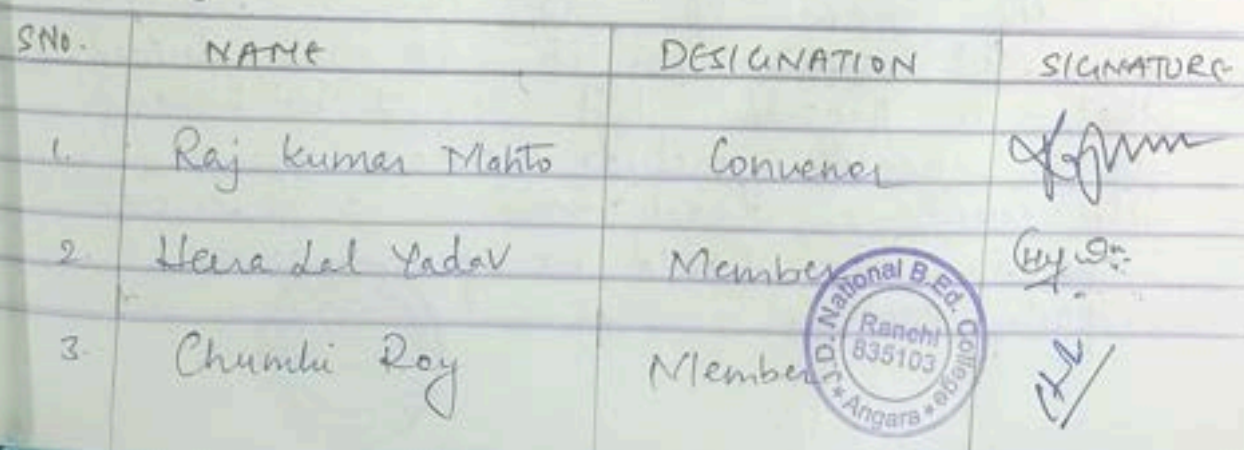 SNo. NAME DESIGNATION SIGNATURE
1. Raj Kumar Mahto Convener
2. Heera Lal Yadav Member
3. Chumki Roy Member
J.D. National B.Ed. College
Ranchi
835103
* Angara *